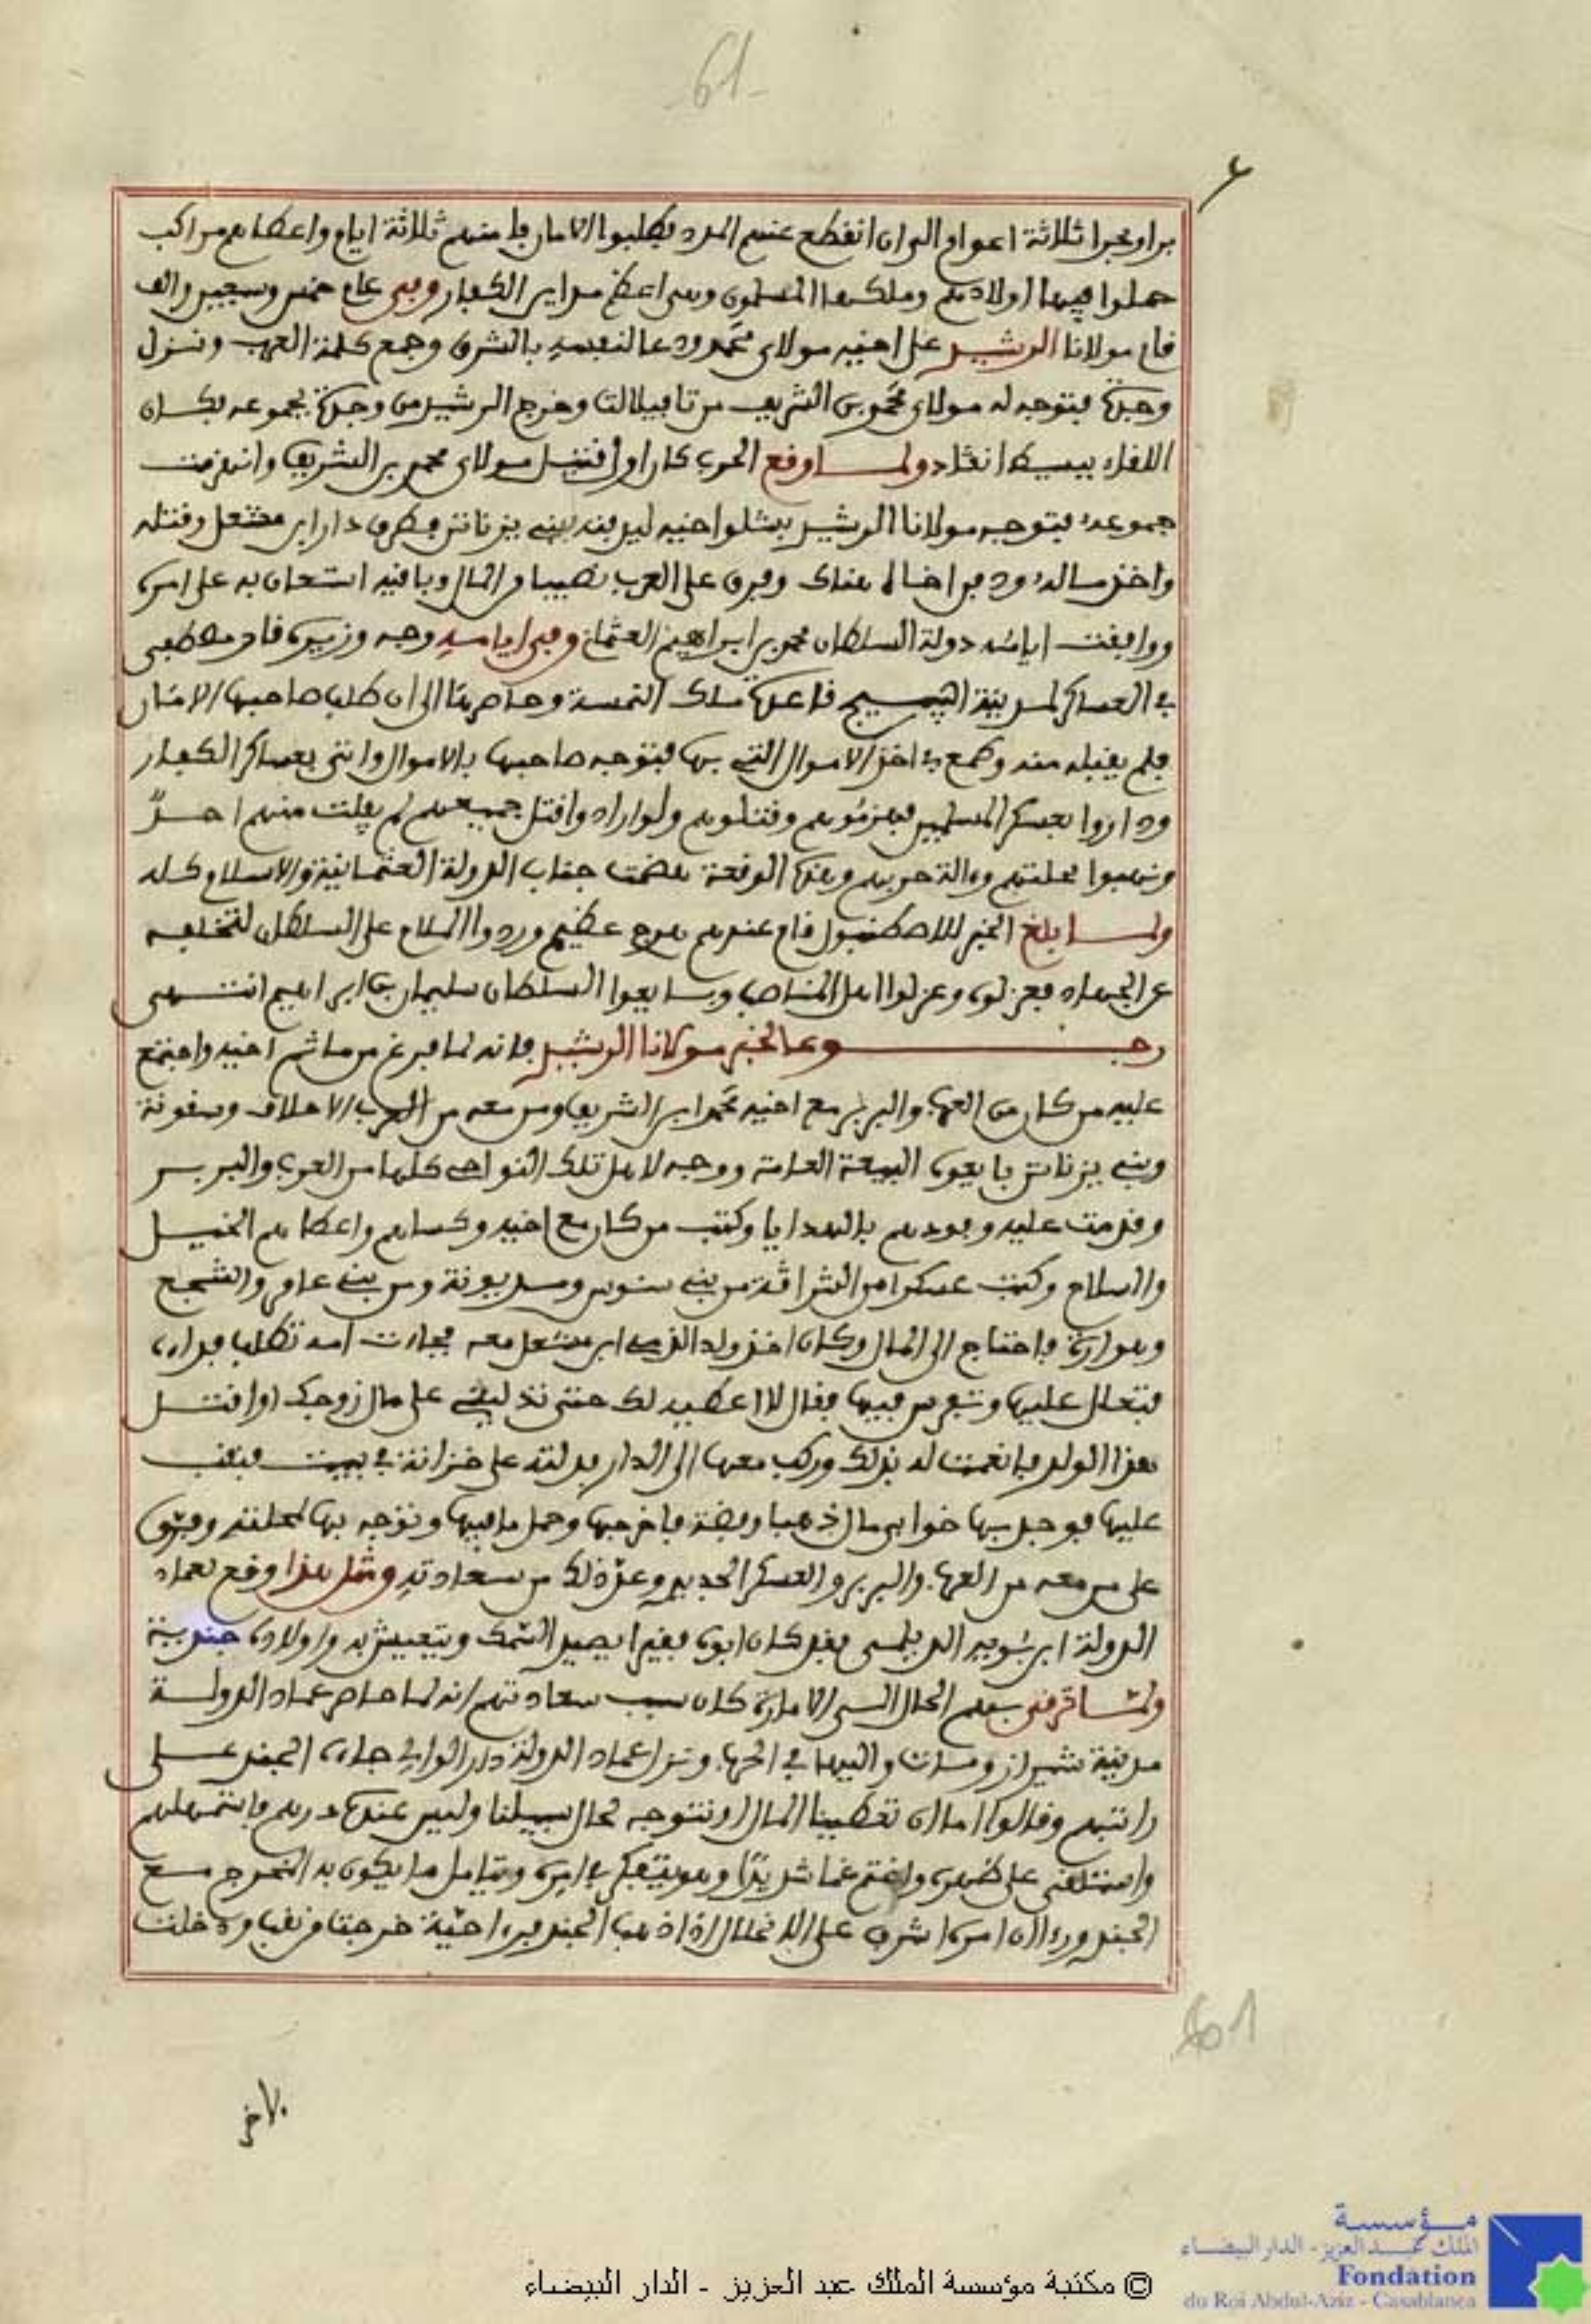 -61-
برا وبحرا ثلاثة اعوام الى ان انقطع عنهم المدد فطلبوا الامان فامنهم ثلاثة ايام واعطاهم مراكب
حملوا فيها اولادهم وملكها المسلمون وهى اعظم مداين الكفار وفى عام خمس وسبعين والف
قام مولانا الرشيد على اخيه مولاى محمد ودعا لنفسه بالشرق وجمع كلمة العرب ونزل
وجدة فتوجه له مولاى محمد بن الشريف من تافيلالت وخرج الرشيد من وجدة بجموعه فكان
اللقاء ببسيط انقاد ولما وقع الحرب كان اول قتيل مولاى محمد بن الشريف وانهزمت
جموعه فتوجه مولانا الرشيد بشلو اخيه ليدفنه ببنى يزناتن فطرق دار ابن مشعل وقتله
واخذ ماله ودفن اخاه هناك وفرق على العرب نصيبا من المال وباقيه استعان به على امره
ووافقت ايامه دولة السلطان محمد بن ابراهيم العثمانى وفى ايامه وجه وزيره قار مصطفى
فى العساكر لمدينة قاعدة ملك النمسة وحاصرها الى ان طلب صاحبها الامان
فلم يقبله منه وطمع فى اخذ الاموال التى بها فتوجه صاحبها بالاموال واتى بعساكر الكفار
وداروا بعسكر المسلمين فهزموهم وقتلوهم ولو ارادوا قتل جميعهم لم يفلت منهم احد
ونهبوا محلتهم وءالة حربهم وبهذه الوقعة هضمت جناب الدولة العثمانية والاسلام كله
ولما بلغ الخبر للاصطنبول قام عندهم هرج عظيم وردوا الملام على السلطان لتخلفه
عن الجهاد فعزلوه وعزلوا اهل المناصب وبايعوا السلطان سليمان بن ابراهيم انتهى
رجوعا لخبر مولانا الرشيد فانه لما فرغ من ماتم اخيه واجتمع
عليه من كان من العرب والبربر مع اخيه محمد ابن الشريف ومن معه من العرب الاحلاف وسقونة
وبنى يزناتن بايعوه البيعة العامة ووجه لاهل تلك النواحى كلها من العرب والبربر
وقدمت عليه وفودهم بالهدايا وكتب من كان مع اخيه وكساهم واعطاهم الخيل
والسلاح وكتب عسكرا من الشراقة من بنى سنوس ومديونة ومن بنى عامر والشجع
وهوارة فاحتاج الى المال وكان اخذ ولد الذمى ابن مشعل معه فجاءت امه تطلب فداءه
فتعلل عليها وتفرس فيها فقال لا اعطيه لك حتى تدلينى على مال زوجك او اقتل
هذا الولد فانعمت له بذلك وركب معها الى الدار فدلته على خزانة فى بيت فنقب
عليها فوجد بها خوابى مال ذهبا وفضة فاخرجها وحمل ما فيها وتوجه بها لمحلته وفرق
على من معه من العرب والبربر والعسكر الجديد وعد ذلك من سعادته ومثل هذا وقع لعماد
الدولة ابن بويه الديلمى فقد كان ابوه فقيرا يصيد السمك ويتعيش به واولاده جندية
ولما ترقى بهم الحال الى الامارة كان سبب سعادتهم انه لما حاصر عماد الدولة
مدينة شيراز ومات واليها فى الحرب ونزل عماد الدولة دار الوالى جاءه الجند على
راتبهم وقالوا اما ان تعطينا المال او نتوجه لحال سبيلنا وليس عنده درهم فاستمهلهم
واستلقى على ظهره واغتم غما شديدا وهو يتفكر فى امره ويتامل ما يكون به المخرج مع
الجند وراى ان امره اشرف على الانحلال اذا ذهب الجند فراى حية خرجت من نقب ودخلت
61
لاخر
مؤسسة
الملك عبد العزيز - الدار البيضاء
Fondation
du Roi Abdul-Aziz - Casablanca
© مكتبة مؤسسة الملك عبد العزيز - الدار البيضاء